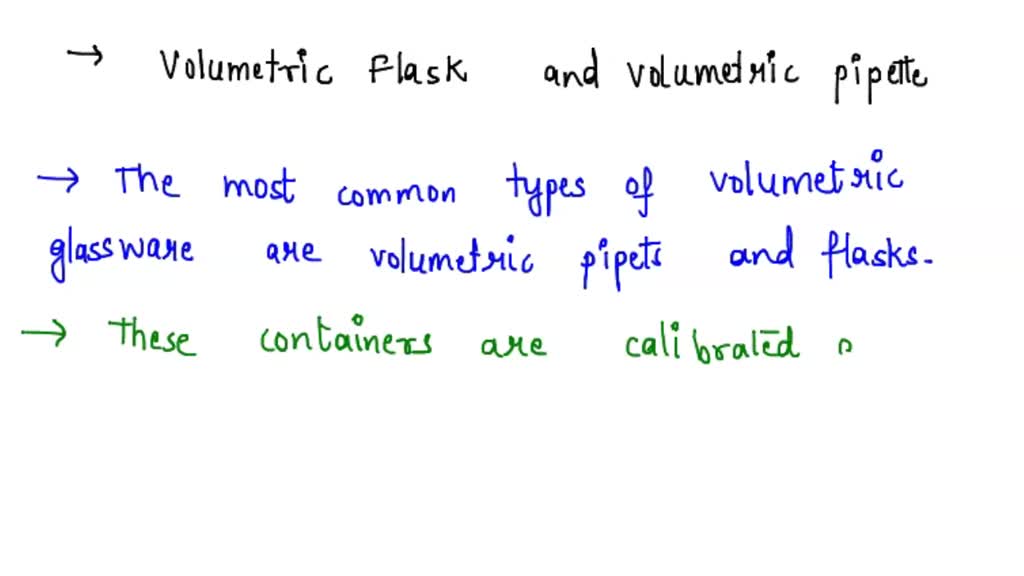 → Volumetric Flask and volumetric pipette
→ The most common types of volumetric
glassware are volumetric pipets and flasks.
→ These containers are calibrated